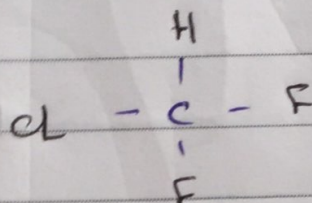 H
|
Cl - C - F
|
F